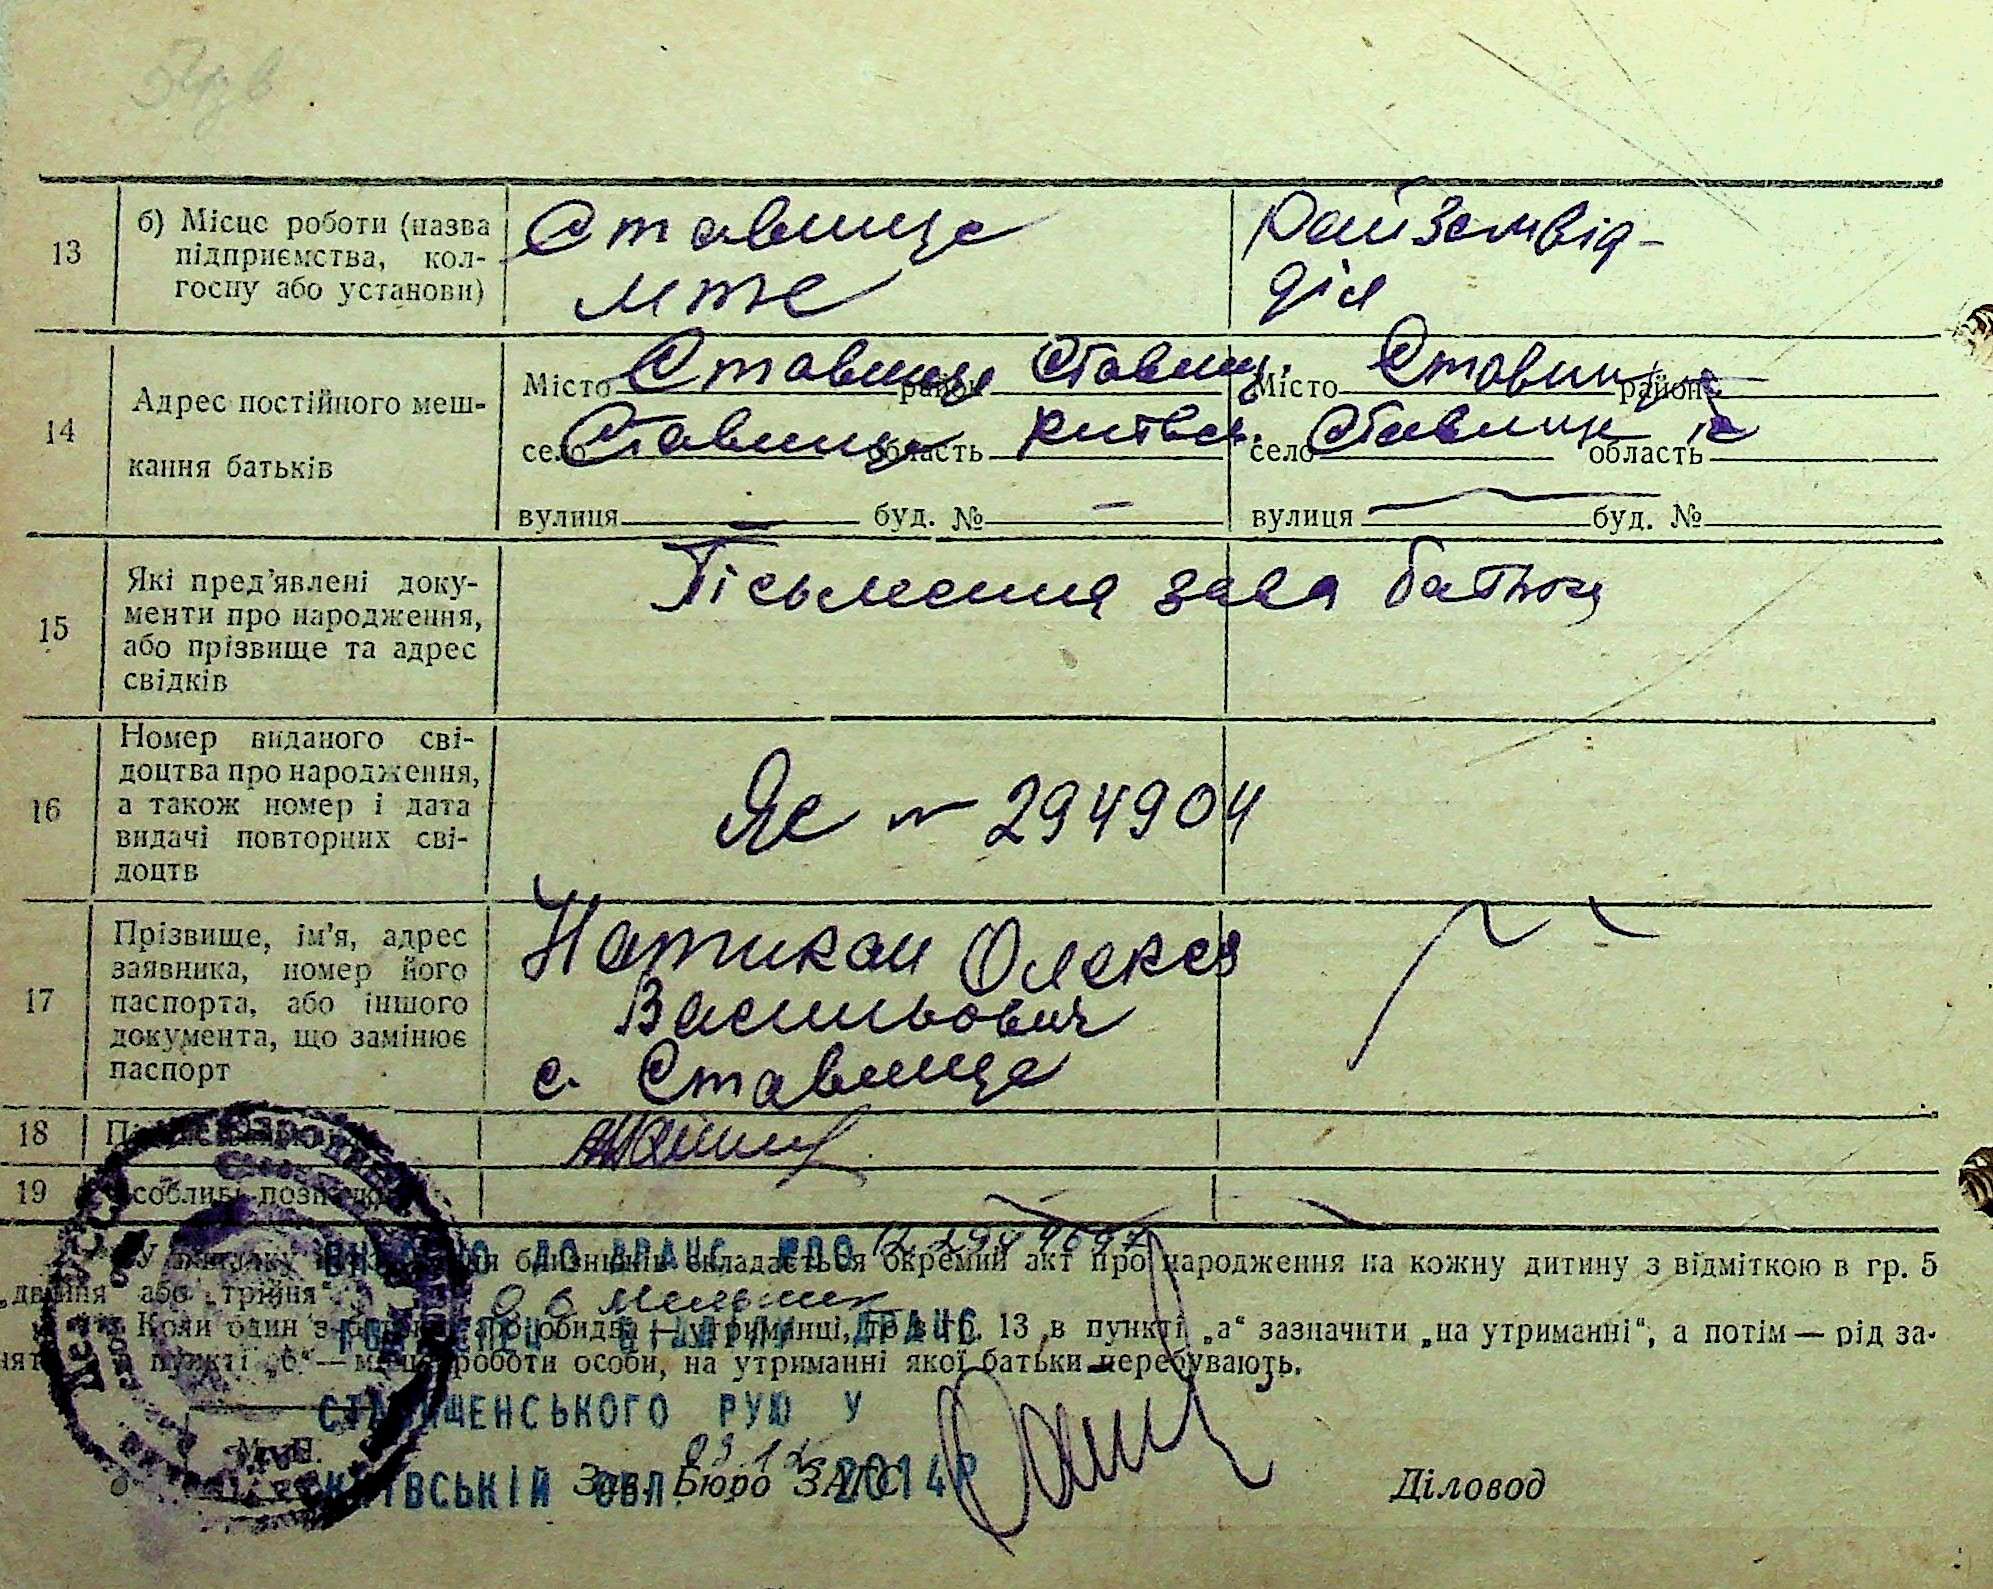 13
б) Місце роботи (назва підприємства, колгоспу або установи)
Ставище
мтс
Райземвід-
діл
14
Адрес постійного мешкання батьків
Місто Ставище район Ставищ.
село Ставище область Київськ.
вулиця — буд. № —
Місто Ставище район
село Ставище область к
вулиця буд. №
15
Які пред'явлені доку-
менти про народження,
або прізвище та адрес
свідків
Пісьменна заява батька
16
Номер виданого сві-
доцтва про народження,
а також номер і дата
видачі повторних сві-
доцтв
ЯЕ № 294904
17
Прізвище, ім'я, адрес
заявника, номер його
паспорта, або іншого
документа, що замінює
паспорт
Натикан Олекса
Васильович
с. Ставище
18
19
Особливі позначки
У випадку народження близнюків складається окремий акт про народження на кожну дитину з відміткою в гр. 5
„двійня" або „трійня".
ВНЕСЕНО ДО ДРАЦС
Коли один з батьків або обидва — утриманці, то в гр. 13 в пункті „а" зазначити „на утриманні", а потім — рід за-
нять, в пункті „б" — місце роботи особи, на утриманні якої батьки перебувають.
СТАВИЩЕНСЬКОГО РУЮ У
М. П.
КИЇВСЬКІЙ ОБЛ. 2014Р
Зав. Бюро ЗАГС
Діловод